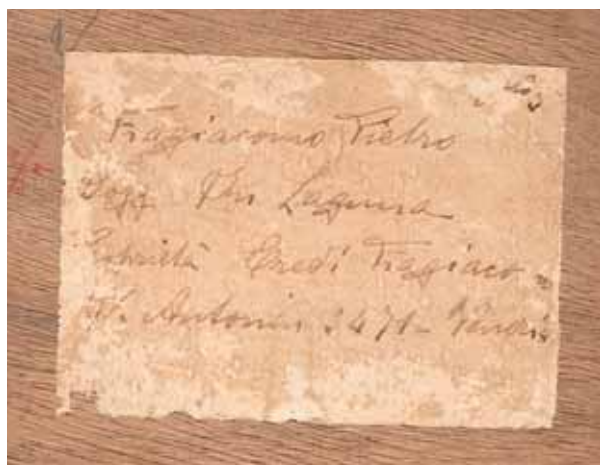 Fragiacomo Pietro
Sogg. In Laguna
Proprietà Eredi Fragiaco
S. Antonin 3471 - Venezia